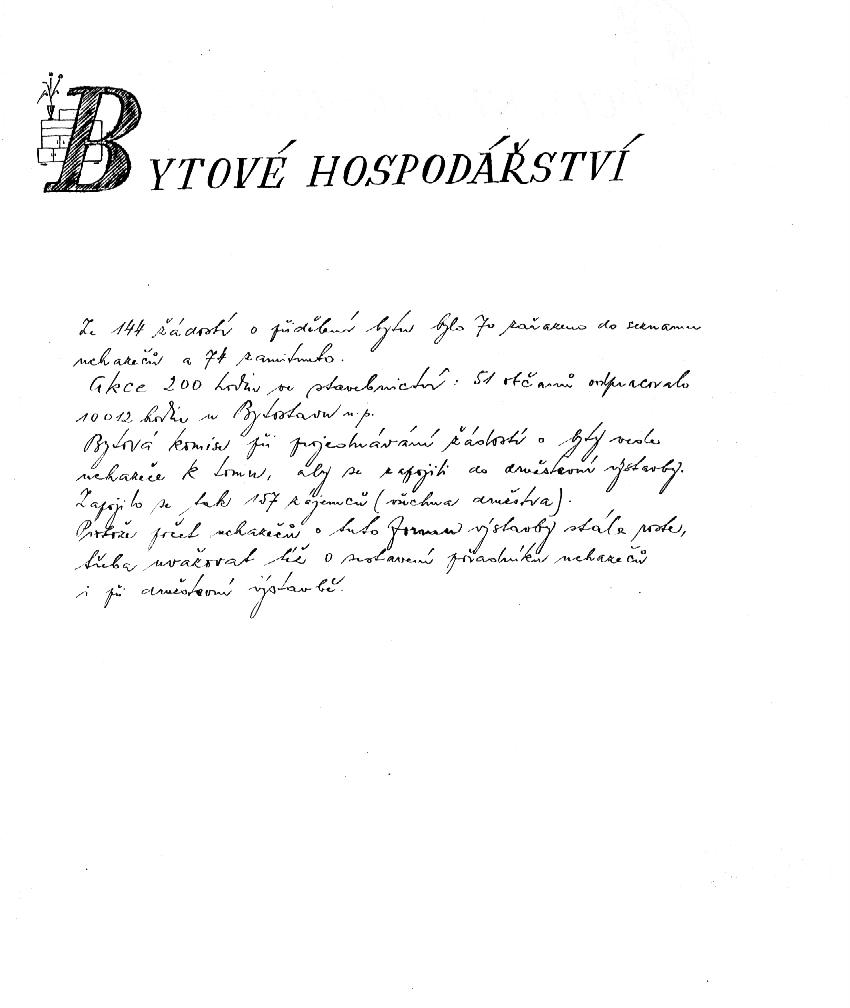 BYTOVÉ HOSPODÁŘSTVÍ
Ze 144 žádostí o přidělení bytu bylo 70 zařazeno do seznamu
uchazečů a 74 zamítnuto.
Akce 200 hodin ve stavebnictví: 51 občanů odpracovalo
10012 hodin u Bytostavu n.p.
Bytová komise při projednávání žádostí o byty vede
uchazeče k tomu, aby se zapojili do družstevní výstavby.
Zapojilo se tak 157 zájemců (všechna družstva).
Protože počet uchazečů o tuto formu výstavby stále roste,
třeba uvažovat též o sestavení pořadníku uchazečů
i při družstevní výstavbě.